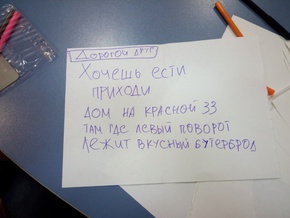 Дорогой друг
Хочешь ести
приходи
дом на красной 33
там где левый поворот
лежит вкусный бутерброд